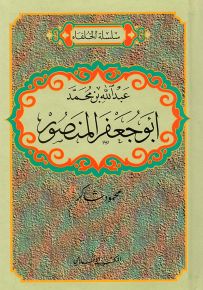 سلسلة الخلفاء
عبد الله بن محمد
أبو جعفر المنصور
محمود شاكر
المكتب الإسلامي